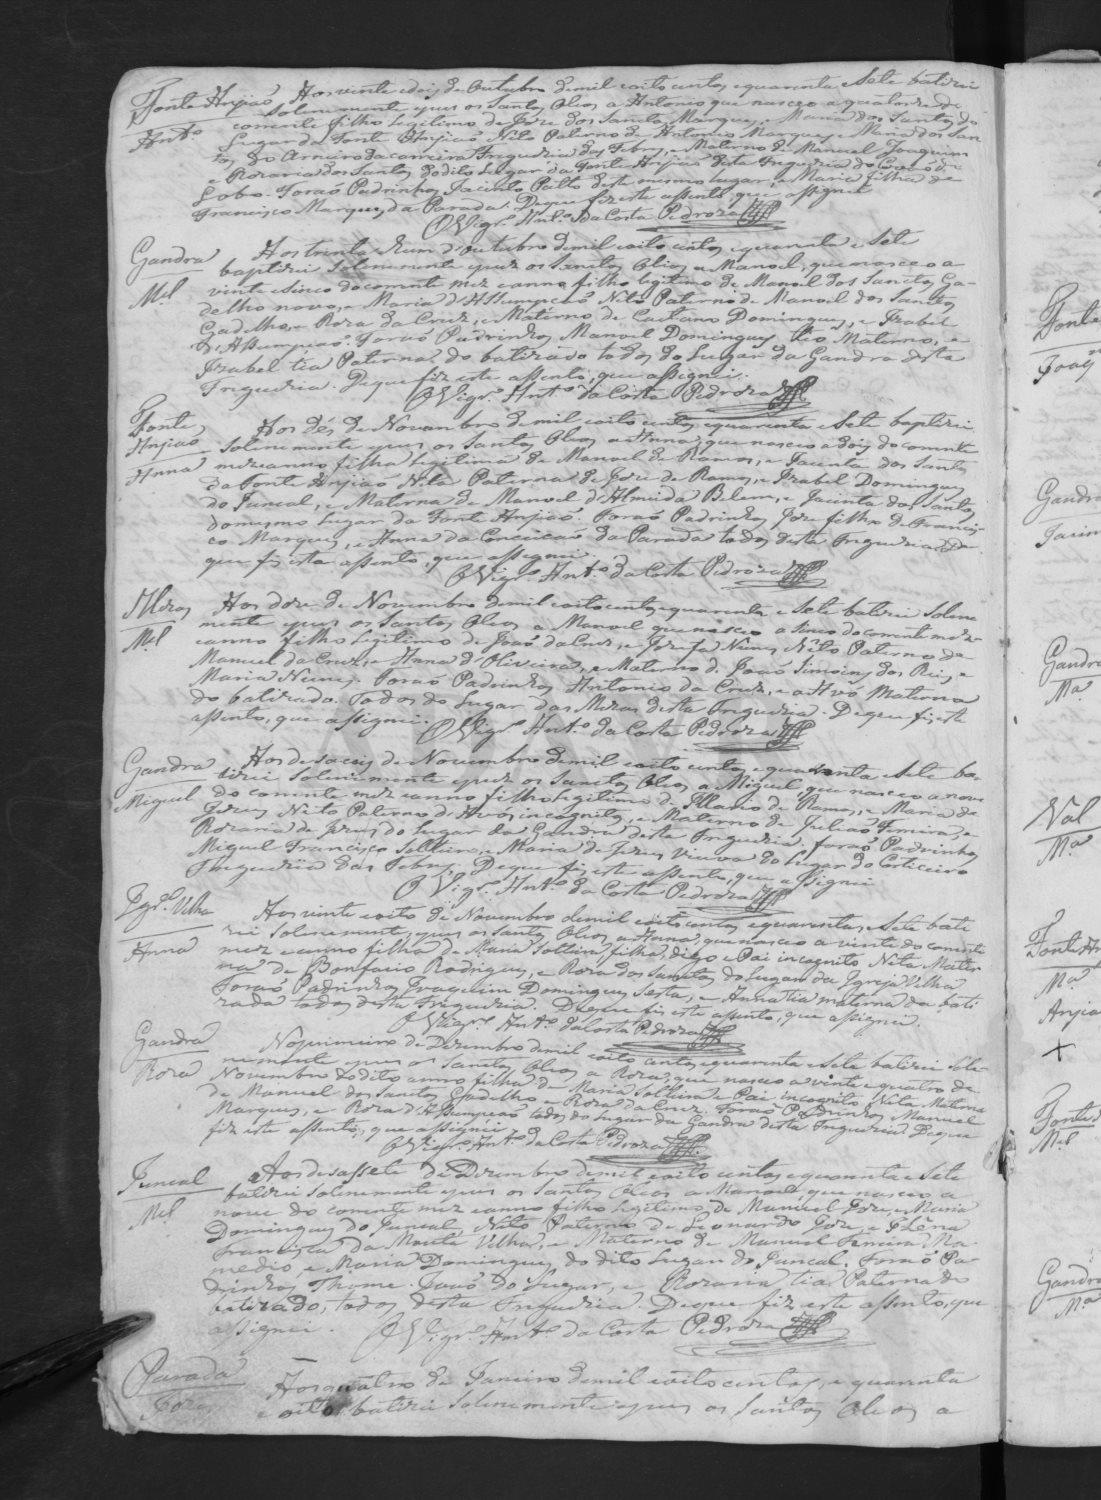 Fonte Anjiaõ
Antº
Aos vinte e dois de Outubro de mil e oito centos e quarenta e Sete batizei
Solenemente e puz os Santos Oleos a Antonio que nasceo a quatorze do
corrente filho Legitimo de Joze dos Santos Marques, e Maria dos Santos do
Lugar da Fonte Anjiaõ Neto Paterno de Antonio Marques, e Maria dos San
tos do Arneiro da carreira Freguezia das Febres, e Materno de Manuel Joaquim
e Rozaria dos Santos do dito Lugar da Fonte Anjiaõ desta Freguezia do
Lobo. Foraõ Padrinhos Jacinto Patto deste mesmo lugar, e Maria filha de
Francisco Marques da Parada. De que fiz este assento que assignei
O Vigrº Antº da Costa Pedroza
Gandra
Mel
Aos trinta e hum d'Outubro de mil e oito centos e quarenta e Sete
baptizei Solenemente e puz os Santos Oleos a Manoel, que nasceo a
vinte e sinco do corrente mez e anno filho legitimo de Manoel dos Sanctos Ga-
delho novo, e Maria d'Assumpçaõ Neto Paterno de Manoel dos Santos
Gadelho, e Roza da Cruz, e Materno de Caetano Domingues, e Izabel
d'Assumpçaõ. Foraõ Padrinhos Manoel Domingues tio Materno, e
Izabel tia Paterna do batizado todos do Lugar da Gandra desta
Freguezia. De que fiz este assento, que assignei.
O Vigrº Antº da Costa Pedroza
Fonte
Anjiaõ
Anna
Aos dés de Novembro de mil e oito centos e quarenta e Sete baptizei
Solenemente e puz os Santos Oleos a Anna, que nasceo a dois do corrente
mez e anno filha legitima de Manoel de Ramos, e Jacinta dos Santos
da Fonte Anjiaõ Neta Paterna de Joze de Ramos, e Izabel Domingues
do Juncal, e Materna de Manoel d'Almeida Belem, e Jacinta dos Santos
do mesmo Lugar da Fonte Anjiaõ. Foraõ Padrinhos Joze filho de Francis-
co Marques, e Anna da Conceicaõ da Parada todos desta Freguezia De
que fiz este assento, que assignei.
O Vigrº Antº da Costa Pedroza
Mezas
Mel
Aos doze de Novembro de mil e oito centos e quarenta e Sete batizei Solene
mente e puz os Santos Oleos a Manoel que nasceo a sinco do corrente mez
e anno filho Legitimo de Joaõ da Cruz, e Jozefa Nunes Neto Paterno de
Manuel da Cruz, e Anna d'Oliveira, e Materno de Joaõ Simoins dos Reis, e
Maria Nunes. Foraõ Padrinhos Antonio da Cruz, e a Avó Materna
do batizado. Todos do Lugar das Mezas desta Freguezia. De que fiz este
assento, que assignei.
O Vigrº Antº da Costa Pedroza
Gandra
Miguel
Aos desaceis de Novembro de mil e oito centos e quarenta e Sete ba-
tizei Solenemente e puz os Sanctos Oleos a Miguel que nasceo a nove
do corrente mez e anno filho Legitimo de Illario de Ramos, e Maria de
Jezus Neto Paterno d'Avos incognitos, e Materno de Juliaõ Ferreira, e
Rozaria de Jezus do lugar da Gandra desta Freguezia, foraõ Padrinhos
Miguel Francisco Solteiro, e Maria de Jezus Viuva do Lugar do Corticeiro
Freguezia das Febres. De que fiz este assento, que assignei
O Vigrº Antº da Costa Pedroza
Igrª Velha
Anna
Aos vinte e oito de Novembro de mil e oito centos e quarenta, e Sete bati
zei Solenemente, e puz os Santos Oleos a Anna, que nasceo a vinte do corrente
mez e anno filha de Maria Solteira, filha, digo e Pai incognito Neta Mater
na de Bonifacio Rodrigues, e Roza dos Santos do Lugar da Igreja Velha
Foraõ Padrinhos Joaquim Domingues Sesta, e Anna tia materna da bati
zada todos desta Freguezia. De que fiz este assento, que assignei.
O Vigrº Antº da Costa Pedroza
Gandra
Roza
No primeiro de Dezembro de mil e oito centos e quarenta e Sete batizei Sole-
nemente e puz os Santos Oleos a Roza, que nasceo a vinte e quatro de
Novembro do dito anno filha de Maria Solteira e Pai incognito Neta Materna
de Manuel dos Santos Gadelho e Roza da Cruz. Foraõ Padrinhos Manuel
Marques, e Roza d'Assumpcaõ todos do Lugar da Gandra desta Freguezia. De que
fiz este assento, que assignei
O Vigrº Antº da Costa Pedroza
Juncal
Mel
Aos desassete de Dezembro de mil e oito centos e quarenta e Sete
batizei solenemente e puz os Santos Oleos a Manoel, que nasceo a
nove do corrente mez e anno filho legitimo, de Manuel Joze, e Maria
Domingues do Juncal, Neto Paterno de Leonardo Joze, e
Francisca da Mouta Velha, e Materno de Manuel Ferreira Re-
medio, e Maria Domingues, do dito Lugar do Juncal. Foraõ Pa-
drinhos Thome Joaõ do Lugar, e Rozaria tia Paterna do
batizado, todos desta Freguezia. De que fiz este assento, que
assignei.
O Vigrº Antº da Costa Pedroza
Parada
Joze
Aos quatro de Janeiro de mil e oito centos, e quarenta
e oito batizei Solenemente e puz os Santos Oleos a
Fonte
Joaqm
Gandra
Gandra
Mª
Val
Mª
Fonte An
Mª
Anjia
Fonte
Mel
Gandra
Mª